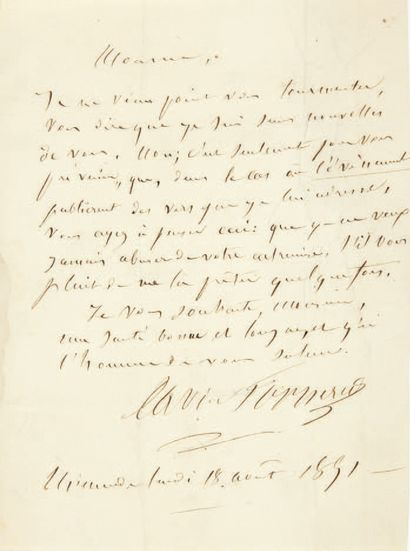 Monsieur,
Je ne viens point vous tourmenter,
vous dire que je suis sans nouvelles
de vous. Non; c'est seulement pour vous
prévenir, que, dans le cas où l'évènement
publierait des vers que je lui adresse,
vous ayez à penser ceci: que je ne veux
jamais abuser de votre s'il vous
plait de me la prêter quelquefois.
Je vous souhaite, Monsieur,
une santé bonne et longue, et j'ai
l'honneur de vous saluer.
lundi 18 août 1851